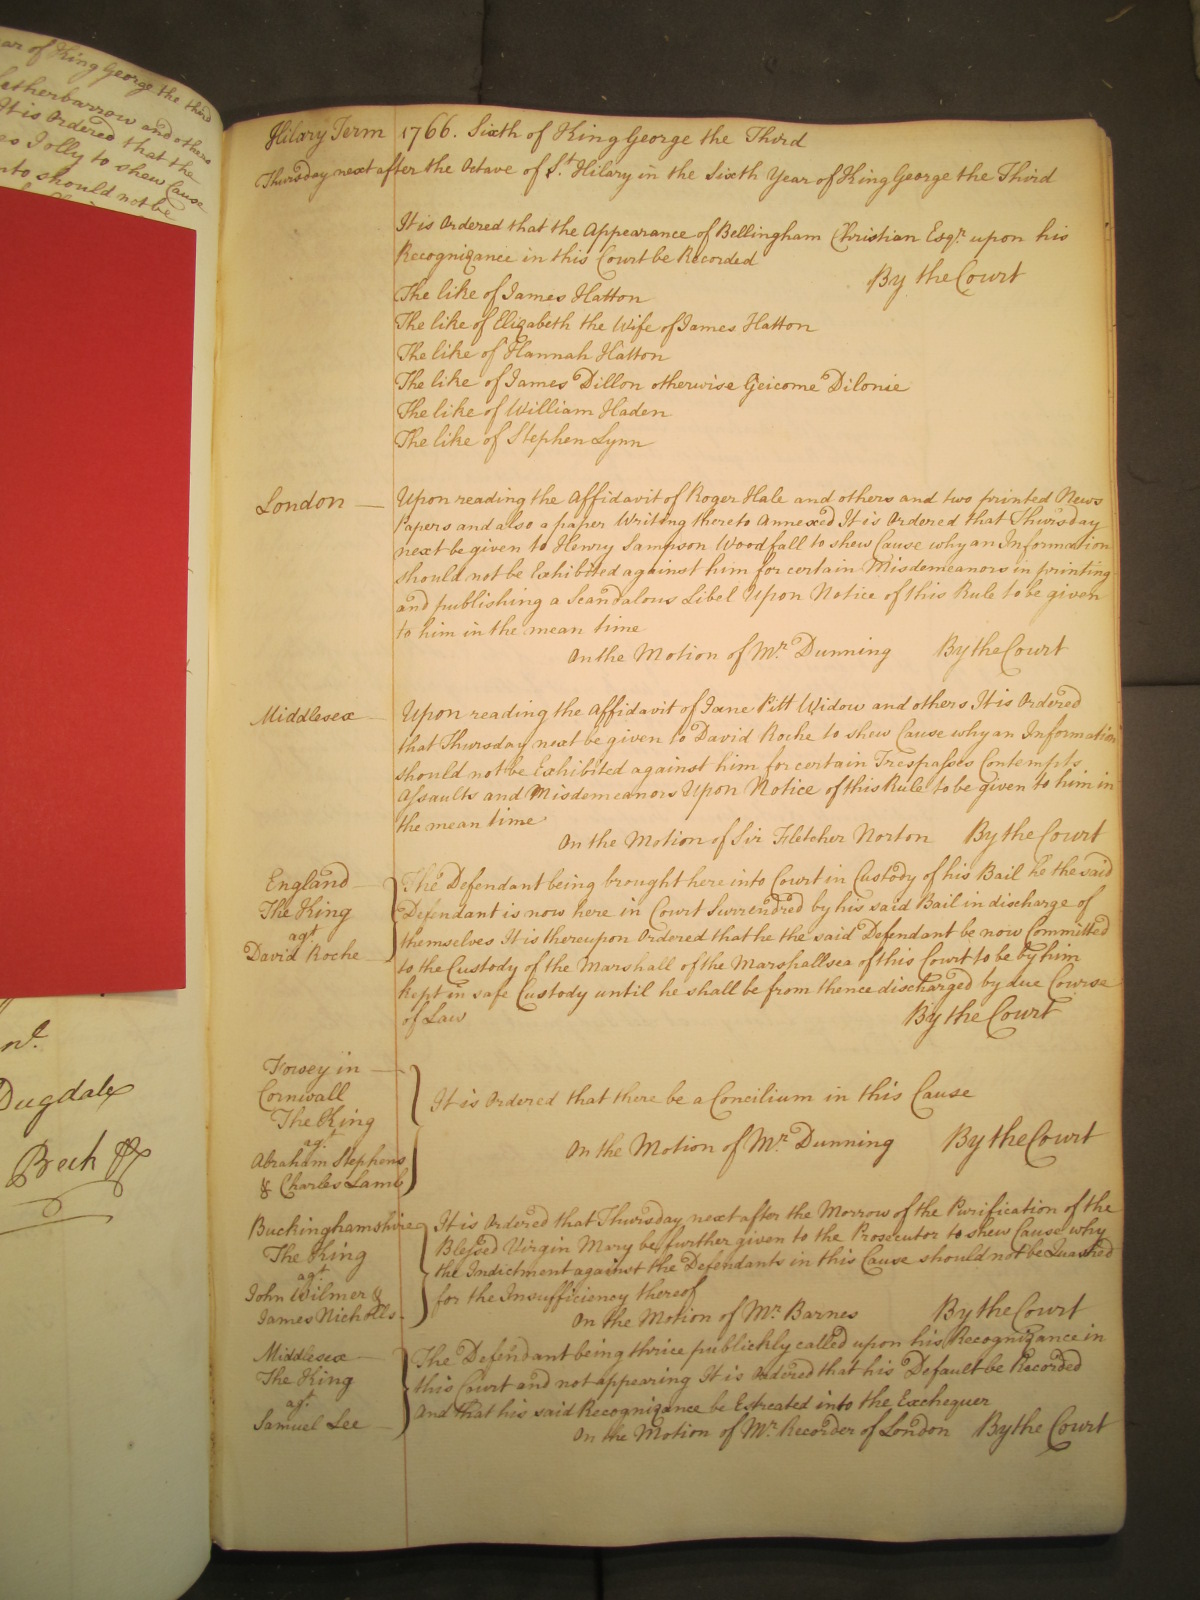 ar of King George the third
Letherbarrow and others
It is Ordered that the
es Jolly to shew Cause
nto should not be
Dugdale
Beck
Hilary Term 1766. Sixth of King George the Third
Thursday next after the Octave of St. Hilary in the Sixth Year of King George the Third
It is Ordered that the Appearance of Bellingham Christian Esqr. upon his
Recognizance in this Court be Recorded
By the Court
The like of James Hatton
The like of Elizabeth the Wife of James Hatton
The like of Hannah Hatton
The like of James Dillon otherwise Geicome Dilonie
The like of William Haden
The like of Stephen Lynn
London
Upon reading the Affidavit of Roger Hale and others and two printed News
Papers and also a paper Writing thereto Annexed It is Ordered that Thursday
next be given to Henry Sampson Woodfall to shew Cause why an Information
should not be Exhibited against him for certain Misdemeanors in printing
and publishing a Scandalous Libel Upon Notice of this Rule to be given
to him in the mean time
On the Motion of Mr. Dunning By the Court
Middlesex
Upon reading the Affidavit of Jane Pitt Widow and others It is Ordered
that Thursday next be given to David Roche to shew Cause why an Information
should not be Exhibited against him for certain Trespasses Contempts
Assaults and Misdemeanors Upon Notice of this Rule to be given to him in
the mean time
On the Motion of Sir Fletcher Norton By the Court
England
The King
agt.
David Roche
The Defendant being brought here into Court in Custody of his Bail he the said
Defendant is now here in Court Surrendred by his said Bail in discharge of
themselves It is thereupon Ordered that he the said Defendant be now Committed
to the Custody of the Marshall of the Marshallsea of this Court to be by him
kept in safe Custody until he shall be from thence discharged by due Course
of Law
By the Court
Fowey in
Cornwall
The King
agt.
Abraham Stephens
& Charles Lamb
It is Ordered that there be a Concilium in this Cause
On the Motion of Mr. Dunning By the Court
Buckinghamshire
The King
agt.
John Wilmer &
James Nicholls
It is Ordered that Thursday next after the Morrow of the Purification of the
Blessed Virgin Mary be further given to the Prosecutor to shew Cause why
the Indictment against the Defendants in this Cause should not be Quashed
for the Insufficiency thereof
On the Motion of Mr. Barnes By the Court
Middlesex
The King
agt.
Samuel Lee
The Defendant being thrice publickly called upon his Recognizance in
this Court and not appearing It is Ordered that his Default be Recorded
And that his said Recognizance be Estreated into the Exchequer
On the Motion of Mr. Recorder of London By the Court